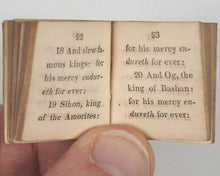 22
18 And slew fa-
mous kings: for
his mercy endu-
reth for ever:
19 Sihon, king
of the Amorites:
23
for his mercy en-
dureth for ever:
20 And Og, the
king of Bashan:
for his mercy en-
dureth for ever: